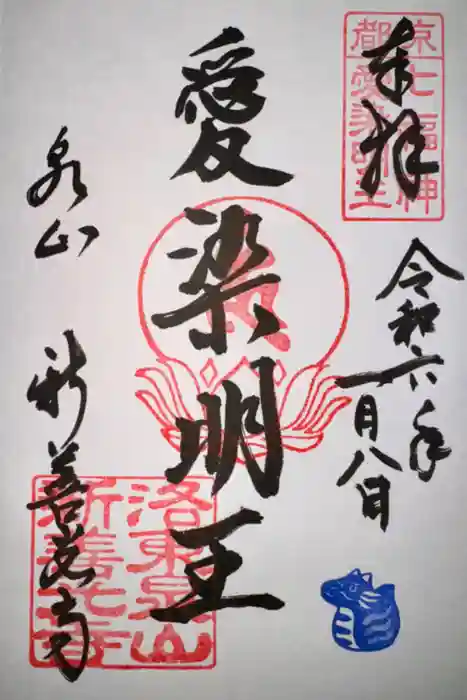 奉拝
京都
七福神
愛染明王
令和六年
一月八日
愛染明王
泉山 新善光寺
洛東泉山
新善光寺